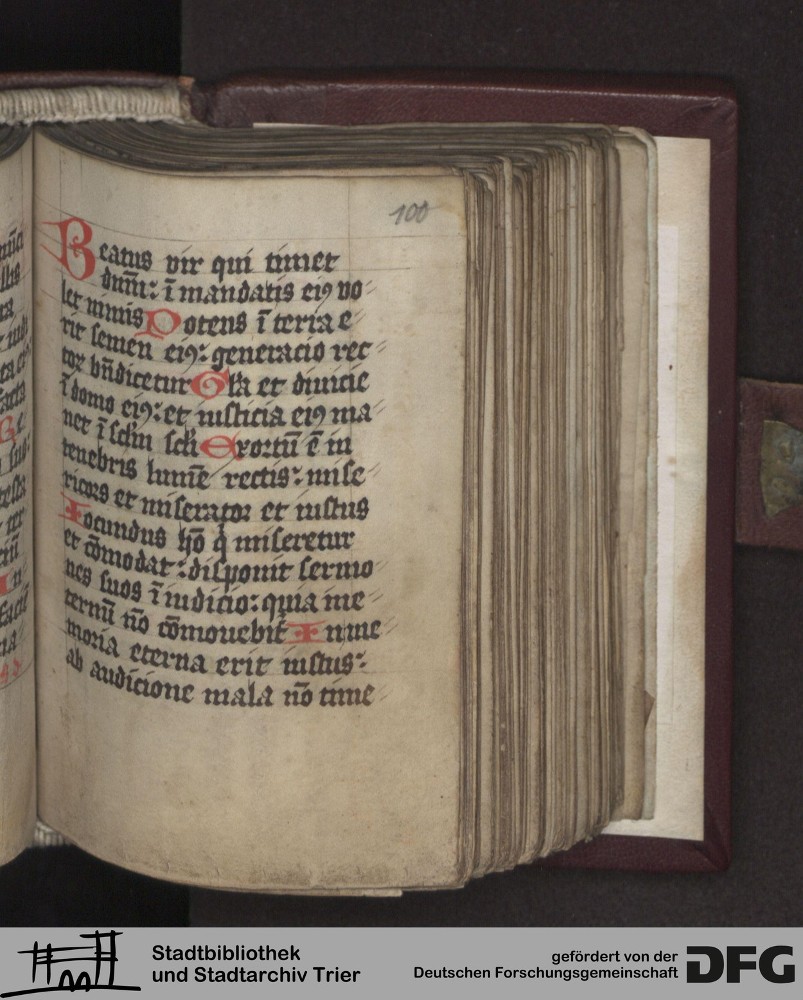 100
Beatus vir qui timet
dnm̄: ī mandatis eiꝰ vo⸗
let nimis Potens ī terra e⸗
rit semen eiꝰ: generacio rec⸗
tor bn̄dicetur Gła et diuicie
ī domo eiꝰ: et iusticia eiꝰ ma⸗
net ī sclm̄ scłi Exortū ē in
tenebris lumē rectis: mise⸗
ricors et miserator et iustus
Iocundus hō q̄ miseretur
et cōmodat: disponit sermo⸗
nes suos ī iudicio: quia ine⸗
ternū nō cōmouebit̄ In me⸗
moria eterna erit iustus:
ab audicione mala nō time⸗
Stadtbibliothek
und Stadtarchiv Trier
gefördert von der
Deutschen Forschungsgemeinschaft
DFG